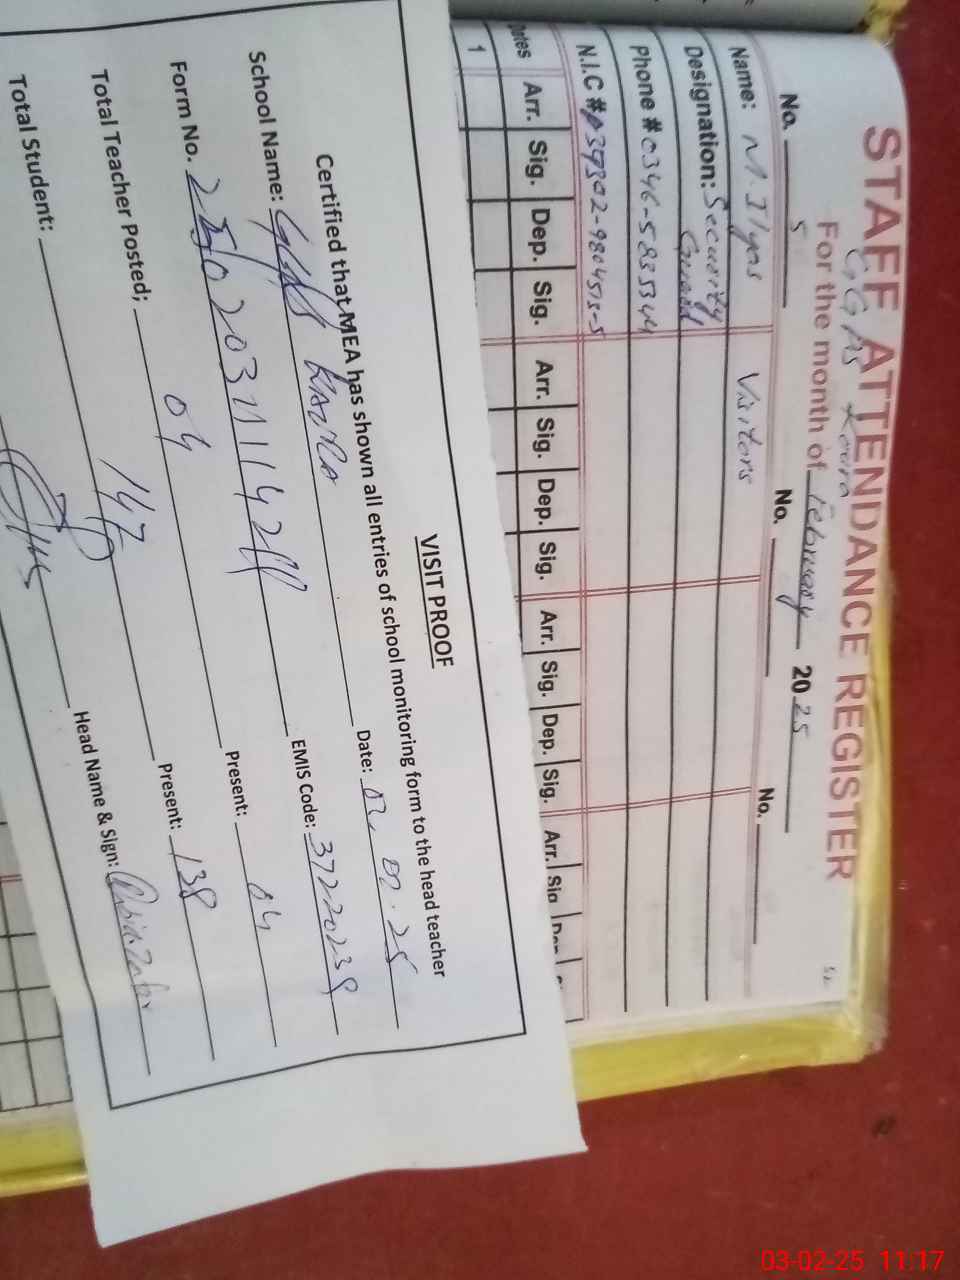 STAFF ATTENDANCE REGISTER
GGPS Koura
For the month of February 2025
No. 5 No. No.
Name: M. Ilyas Visitors
Designation: Security Guard
Phone # 0346-5835344
N.I.C #
Dates Arr. Sig. Dep. Sig. Arr. Sig. Dep. Sig. Arr. Sig. Dep. Sig. Arr. Sig Dep
1
VISIT PROOF
Certified that MEA has shown all entries of school monitoring form to the head teacher
School Name: GGPS Date:
Form No. EMIS Code: 37220238
Total Teacher Posted; 04 Present: 04
Total Student: 147 Present: 138
Head Name & Sign:
03-02-25 11:17